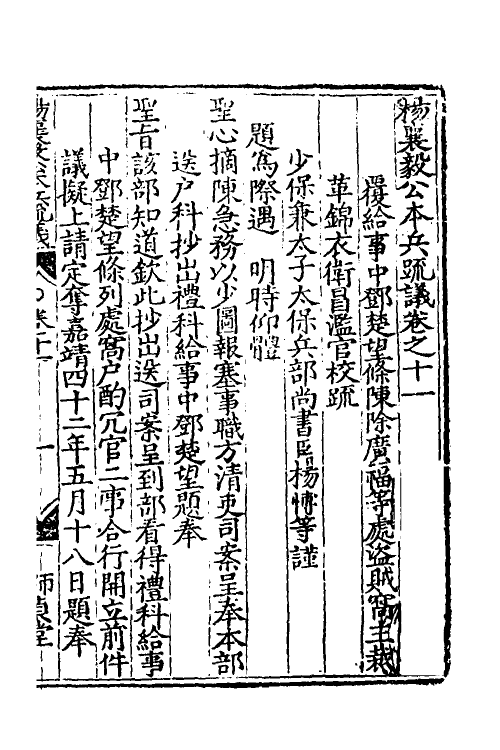 楊襄毅公本兵疏議卷之十一
覆給事中鄧楚望條陳除廣福等處盜賊窩主裁
革錦衣衛冒濫官校疏
少保兼太子太保兵部尚書臣楊博等謹
題爲際遇 明時仰體
聖心摘陳急務以少圖報塞事職方清吏司案呈奉本部
送户科抄出禮科給事中鄧楚望題奉
聖旨該部知道欽此抄出送司案呈到部看得禮科給事
中鄧楚望條列處窩户酌冗官二事合行開立前件
議擬上請定奪嘉靖四十二年五月十八日題奉
楊襄毅公本兵疏議 卷十一 一 師貞堂